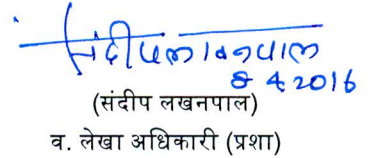 संदीप लखनपाल
8 4 2016
(संदीप लखनपाल)
व. लेखा अधिकारी (प्रशा)